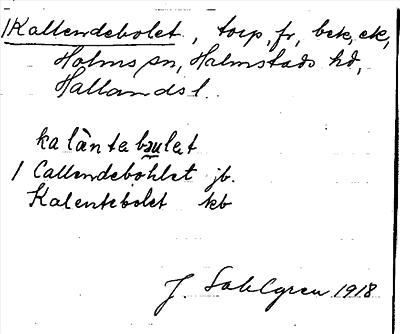 1 Kallendebolet, torp, fr, bek, ek,
Holms sn, Halmstads hd,
Hallands l.
kalàntebɯlet
1 Callendebohlet jb.
Kalentebolet kb
J. Sahlgren 1918